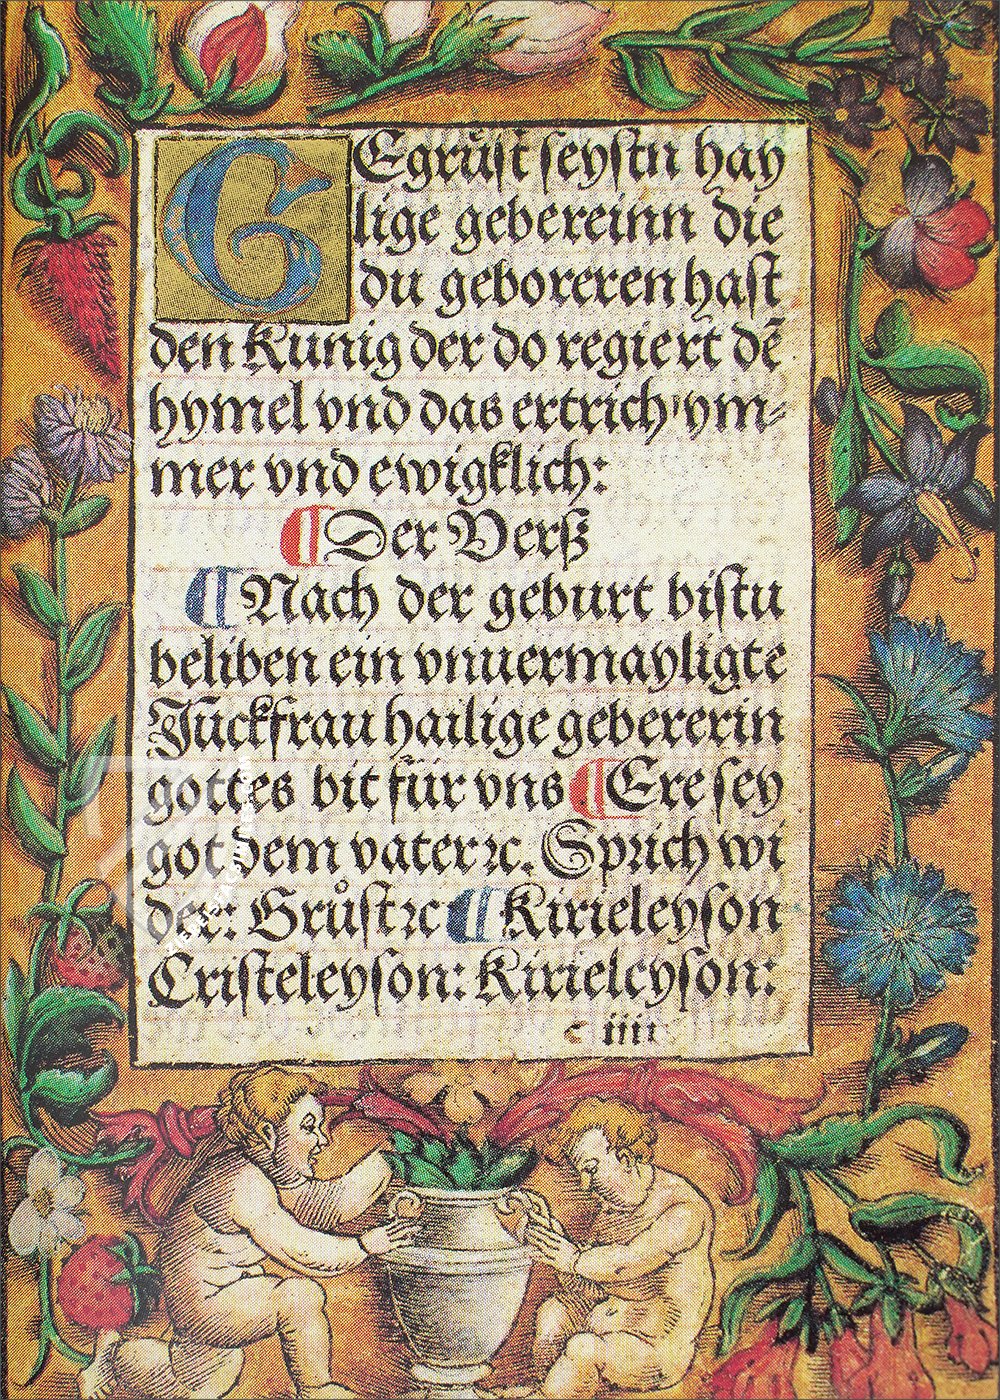 GEgruͤst seystu hay
lige gebereinn die
du geboreren hast
den Kunig der do regiert dē
hymel vnd das ertrich' ym⸗
mer vnd ewigklich:
¶ Der Verß
¶ Nach der geburt bistu
beliben ein vnuermayligte
Juckfrau hailige gebererin
gottes bit für vns ¶ Ere sey
got dem vater ꝛc. Sprich wi
der: Gruͦst ꝛc ¶ Kirieleyson
Cristeleyson: Kirieleyson:
c iiii